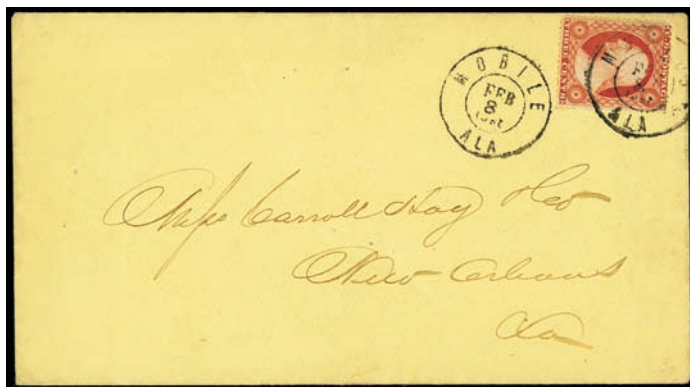 MOBILE
FEB
8
ALA
M
ALA
Mess Carroll Hoy & Co
New Orleans
La